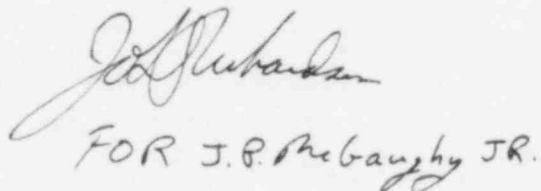 J. L. Richardson
FOR J.P. McGaughy JR.